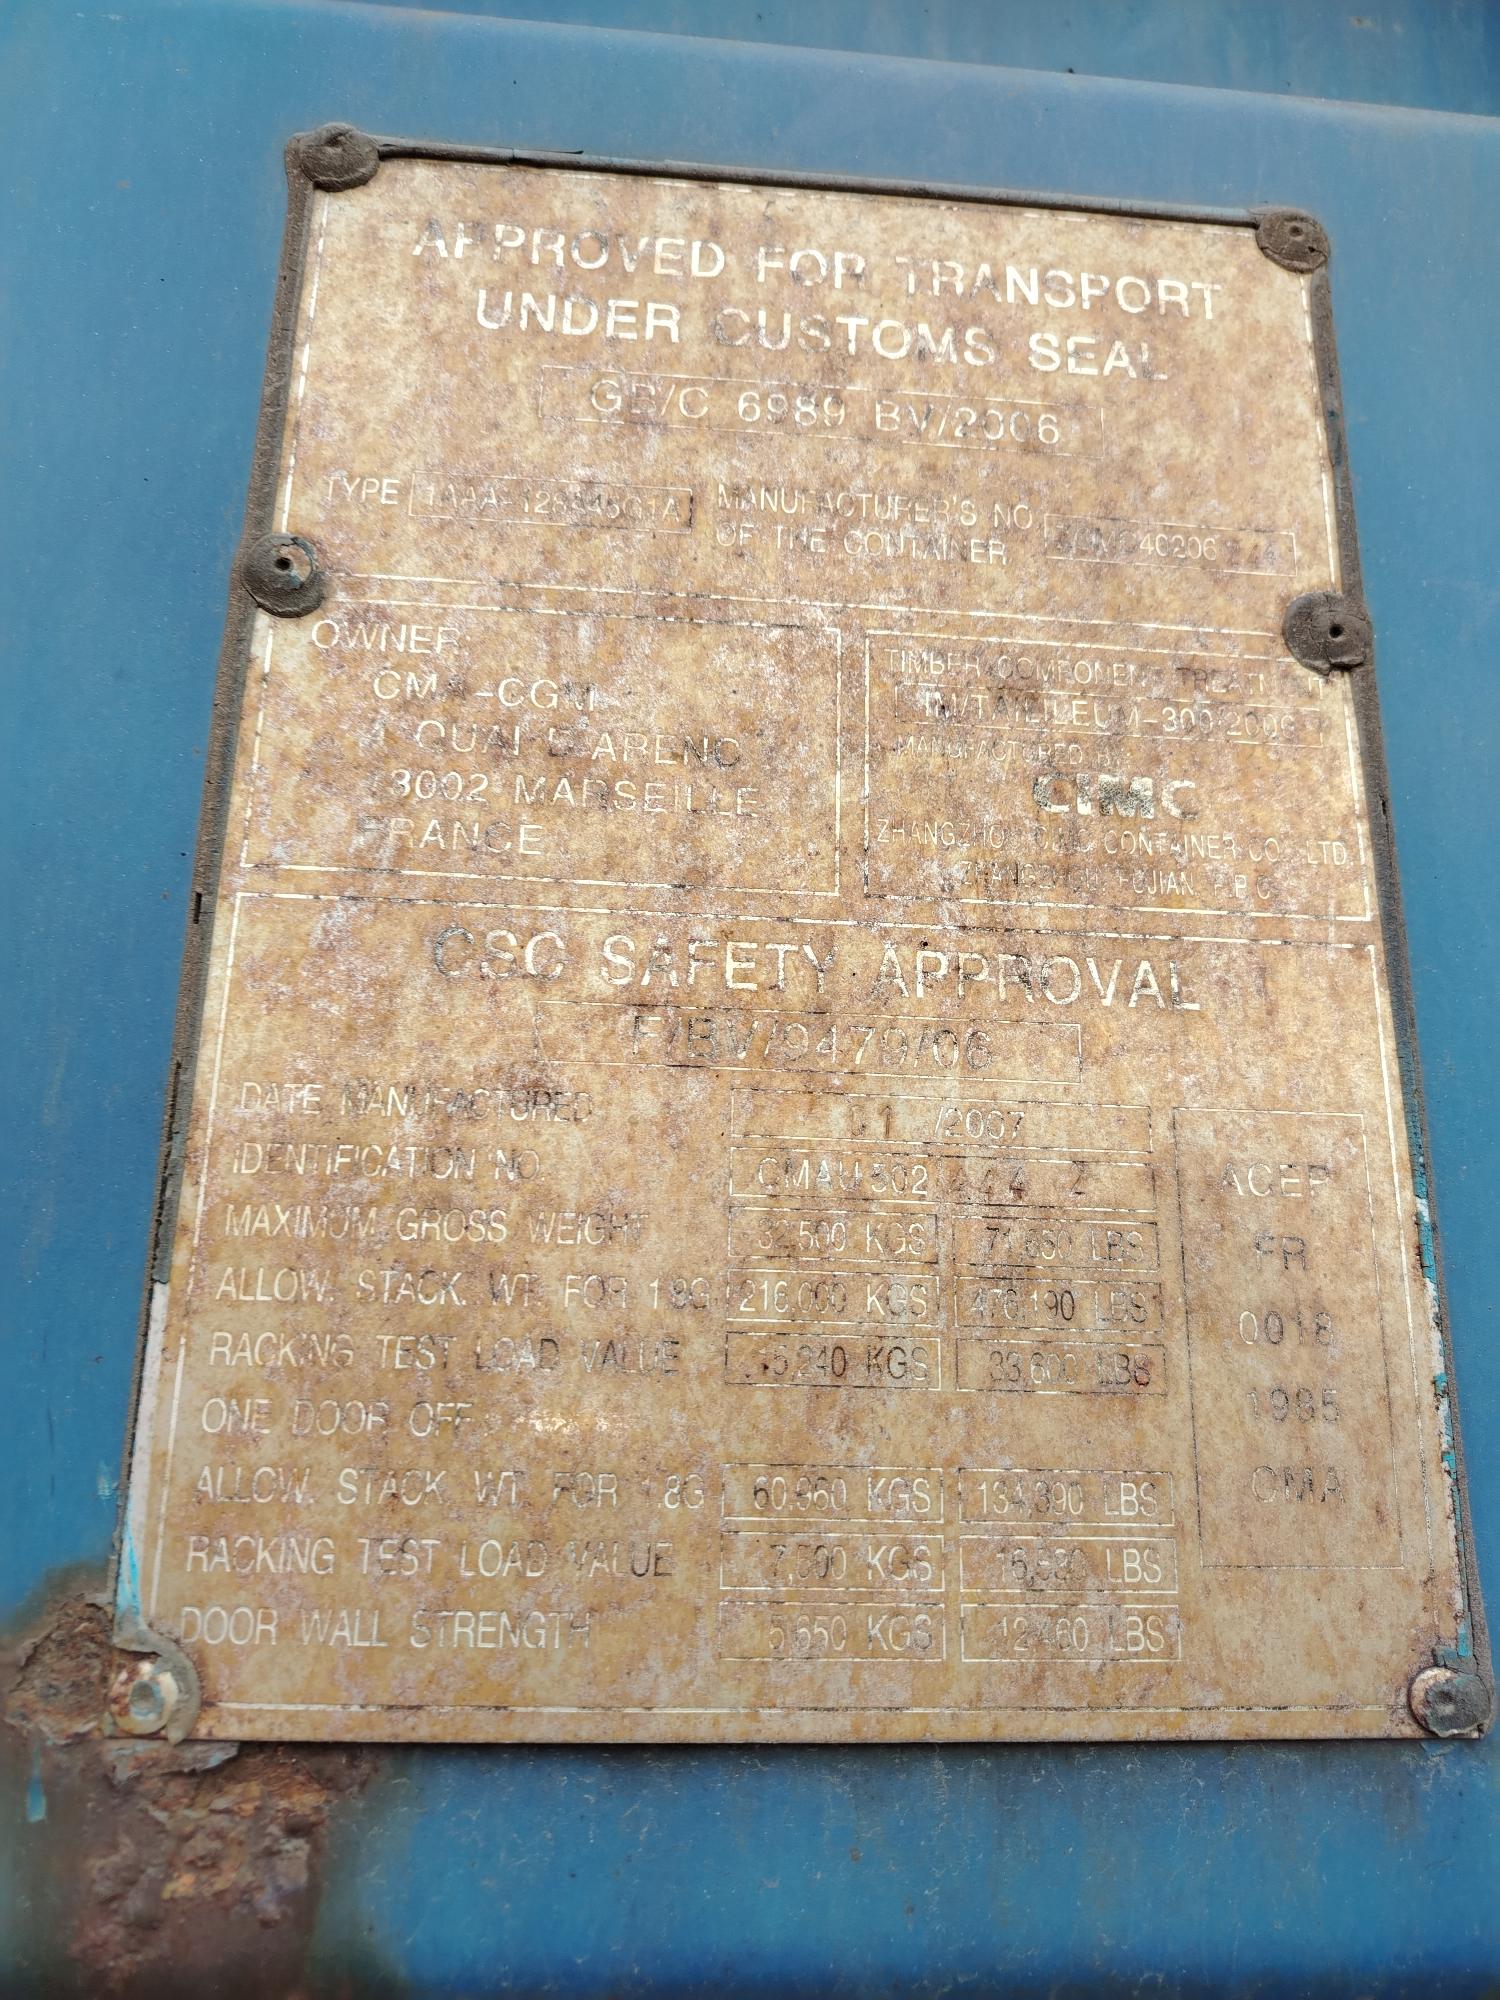 APPROVED FOR TRANSPORT
UNDER CUSTOMS SEAL
GB/C 6989 BV/2006
TYPE 1AAA-128A45G1A
MANUFACTURER'S NO
OF THE CONTAINER
OWNER:
CMA-CGM
4 QUAI D'ARENC
13002 MARSEILLE
FRANCE
TIMBER COMPONENT TREATMENT
IM/TAILILEUM-300/2006
MANUFACTURED BY:
CIMC
ZHANGZHOU CIMC CONTAINER CO., LTD.
ZHANGZHOU, FUJIAN, P.R.C.
CSC SAFETY APPROVAL
F/BV/9479/06
DATE MANUFACTURED 01 /2007
IDENTIFICATION NO. CMAU 502
MAXIMUM GROSS WEIGHT 32,500 KGS 71,650 LBS
ALLOW. STACK. WT. FOR 1.8G 216,000 KGS 476,190 LBS
RACKING TEST LOAD VALUE 15,240 KGS 33,600 LBS
ONE DOOR OFF:
ALLOW. STACK. WT. FOR 1.8G 60,960 KGS 134,390 LBS
RACKING TEST LOAD VALUE 7,500 KGS 16,530 LBS
DOOR WALL STRENGTH 5,650 KGS 12,460 LBS
ACEP
FR
0018
1985
CMA